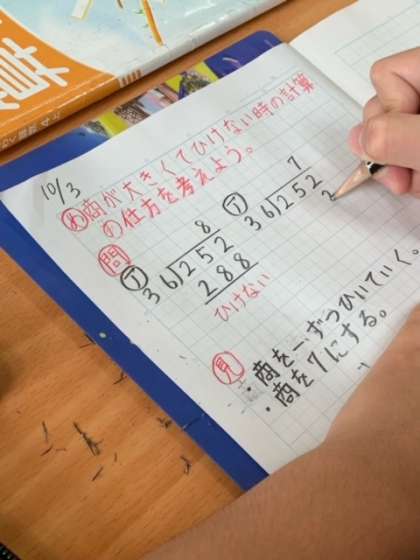 10/3
め 商が大きくてひけない時の計算
の仕方を考えよう。
問
ア
8
36)252
288
ひけない
イ
7
36)252
2
見
・商を一ずつひいていく。
・商を7にする。